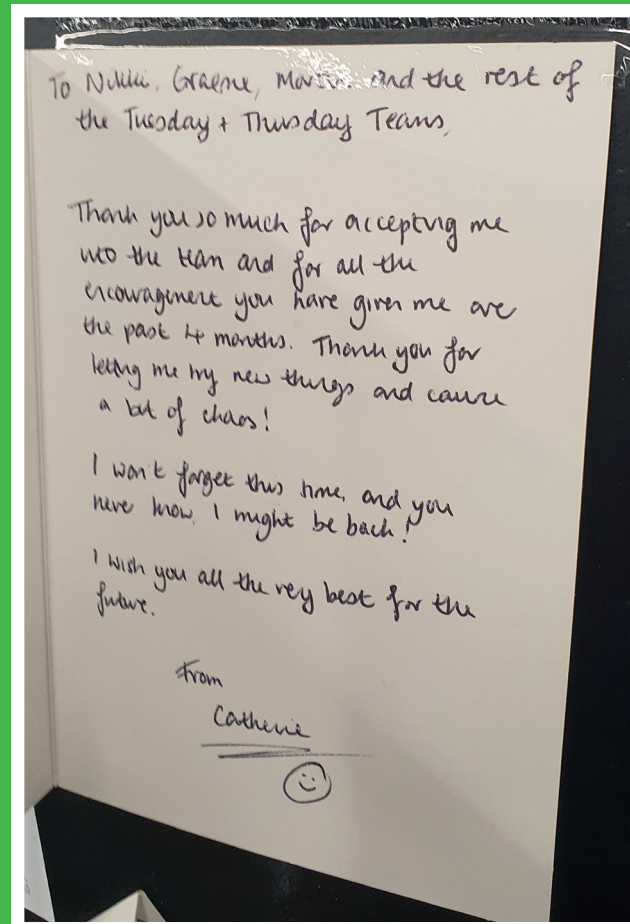 To Nikki, Graeme, and the rest of
the Tuesday + Thursday Teams,
Thank you so much for accepting me
into the team and for all the
encouragement you have given me over
the past 4 months. Thank you for
letting me try new things and cause
a bit of chaos!
I won't forget this time, and you
never know, I might be back!
I wish you all the very best for the
future.
From
Catherine